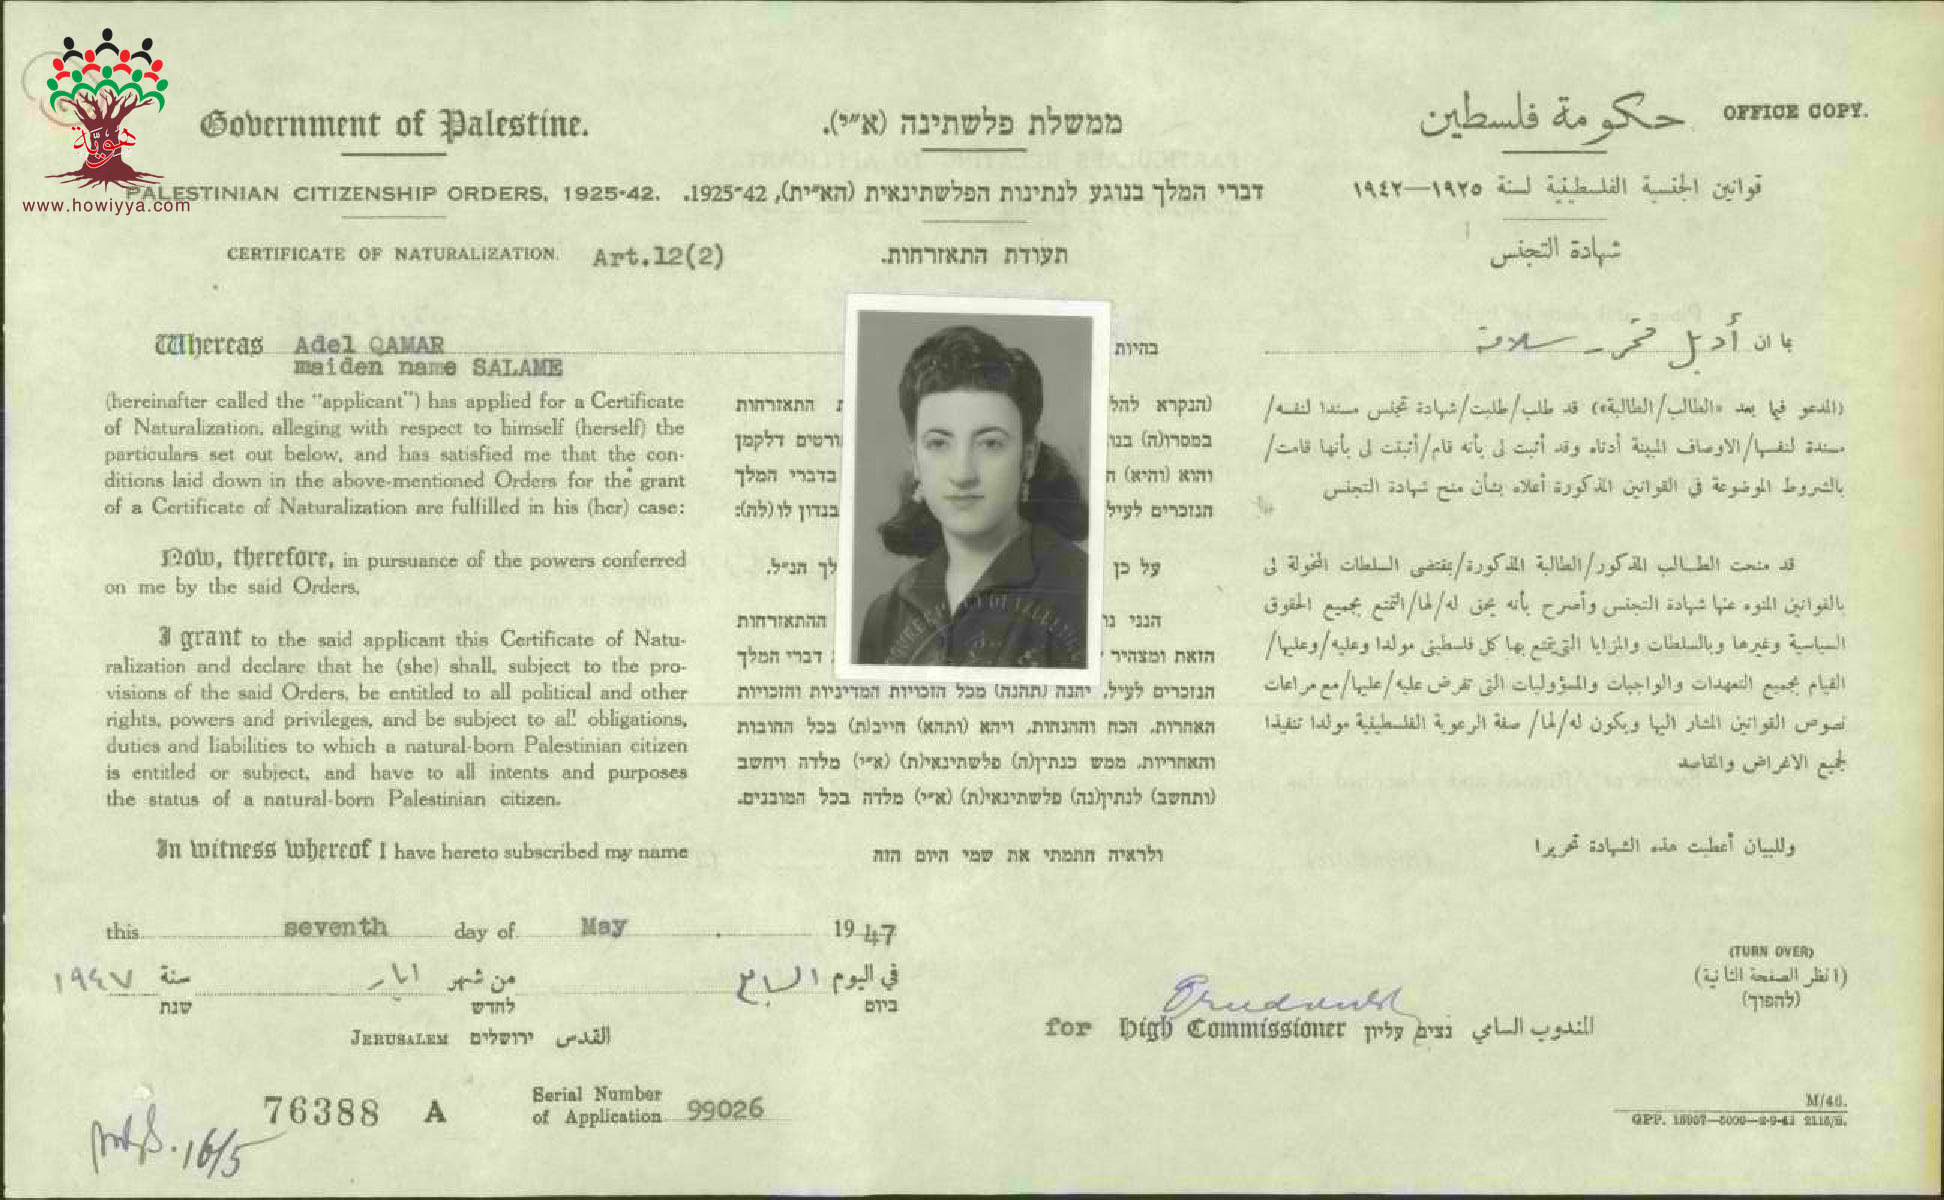 هويّة
www.howiyya.com
OFFICE COPY.
Government of Palestine.
PALESTINIAN CITIZENSHIP ORDERS, 1925-42.
CERTIFICATE OF NATURALIZATION. Art.12(2)
ממשלת פלשתינה (א״י).
דברי המלך בנוגע לנתינות הפלשתינאית (הא״ית), 1925-42.
תעודת התאזרחות.
حكومة فلسطين
قوانين الجنسية الفلسطينية لسنة ١٩٢٥—١٩٤٢
شهادة التجنس
Whereas Adel QAMAR
maiden name SALAME
(hereinafter called the "applicant") has applied for a Certificate
of Naturalization, alleging with respect to himself (herself) the
particulars set out below, and has satisfied me that the con-
ditions laid down in the above-mentioned Orders for the grant
of a Certificate of Naturalization are fulfilled in his (her) case:
Now, therefore, in pursuance of the powers conferred
on me by the said Orders,
I grant to the said applicant this Certificate of Natu-
ralization and declare that he (she) shall, subject to the pro-
visions of the said Orders, be entitled to all political and other
rights, powers and privileges, and be subject to all obligations,
duties and liabilities to which a natural-born Palestinian citizen
is entitled or subject, and have to all intents and purposes
the status of a natural-born Palestinian citizen.
In witness whereof I have hereto subscribed my name
בהיות
(הנקרא להל התאזרחות
במסרו(ה) בנו ורטים דלקמן
והוא (והיא) בדברי המלך
הנזכרים לעיל בנדון לו (לה):
על כן לך הנ״ל.
הנני ההתאזרחות
הזאת ומצהיר דברי המלך
הנזכרים לעיל, יהנה (תהנה) מכל הזכויות המדיניות והזכויות
האחרות, הכח וההנחות, ויהא (ותהא) חייב(ת) בכל החובות
והאחריות, ממש כנתין(ה) פלשתינאי(ת) (א״י) מלדה ויחשב
(ותחשב) לנתין(נה) פלשתינאי(ת) (א״י) מלדה בכל המובנים.
ולראיה חתמתי את שמי היום הזה
بما ان أديل قمر - سلامة
(المدعو فيما بعد «الطالب/الطالبة») قد طلب/طلبت/شهادة تجنس مسندا لنفسه/
مسندة لنفسها/الاوصاف المبينة أدناه وقد أثبت لى بأنه قام/أثبتت لى بأنها قامت/
بالشروط الموضوعة فى القوانين المذكورة أعلاه بشأن منح شهادة التجنس
قد منحت الطالب المذكور/الطالبة المذكورة/بمقتضى السلطات المخولة لى
بالقوانين المنوه عنها شهادة التجنس وأصرح بأنه يحق له/لها/التمتع بجميع الحقوق
السياسية وغيرها وبالسلطات والمزايا التى يتمتع بها كل فلسطينى مولدا وعليه/وعليها/
القيام بجميع التعهدات والواجبات والمسؤوليات التى تفرض عليه/عليها/مع مراعات
نصوص القوانين المشار اليها ويكون له/لها/ صفة الرعوية الفلسطينية مولدا تنفيذا
لجميع الاغراض والمقاصد
وللبيان أعطيت هذه الشهادة تحريرا
this seventh day of May 1947
في اليوم السابع من شهر ايار سنة ١٩٤٧
ביום לחדש שנת
JERUSALEM ירושלים القدس
for High Commissioner נציב עליון المندوب السامي
(TURN OVER)
(انظر الصفحة الثانية)
(להפוך)
76388 A
Serial Number
of Application 99026
16/5
M/46.